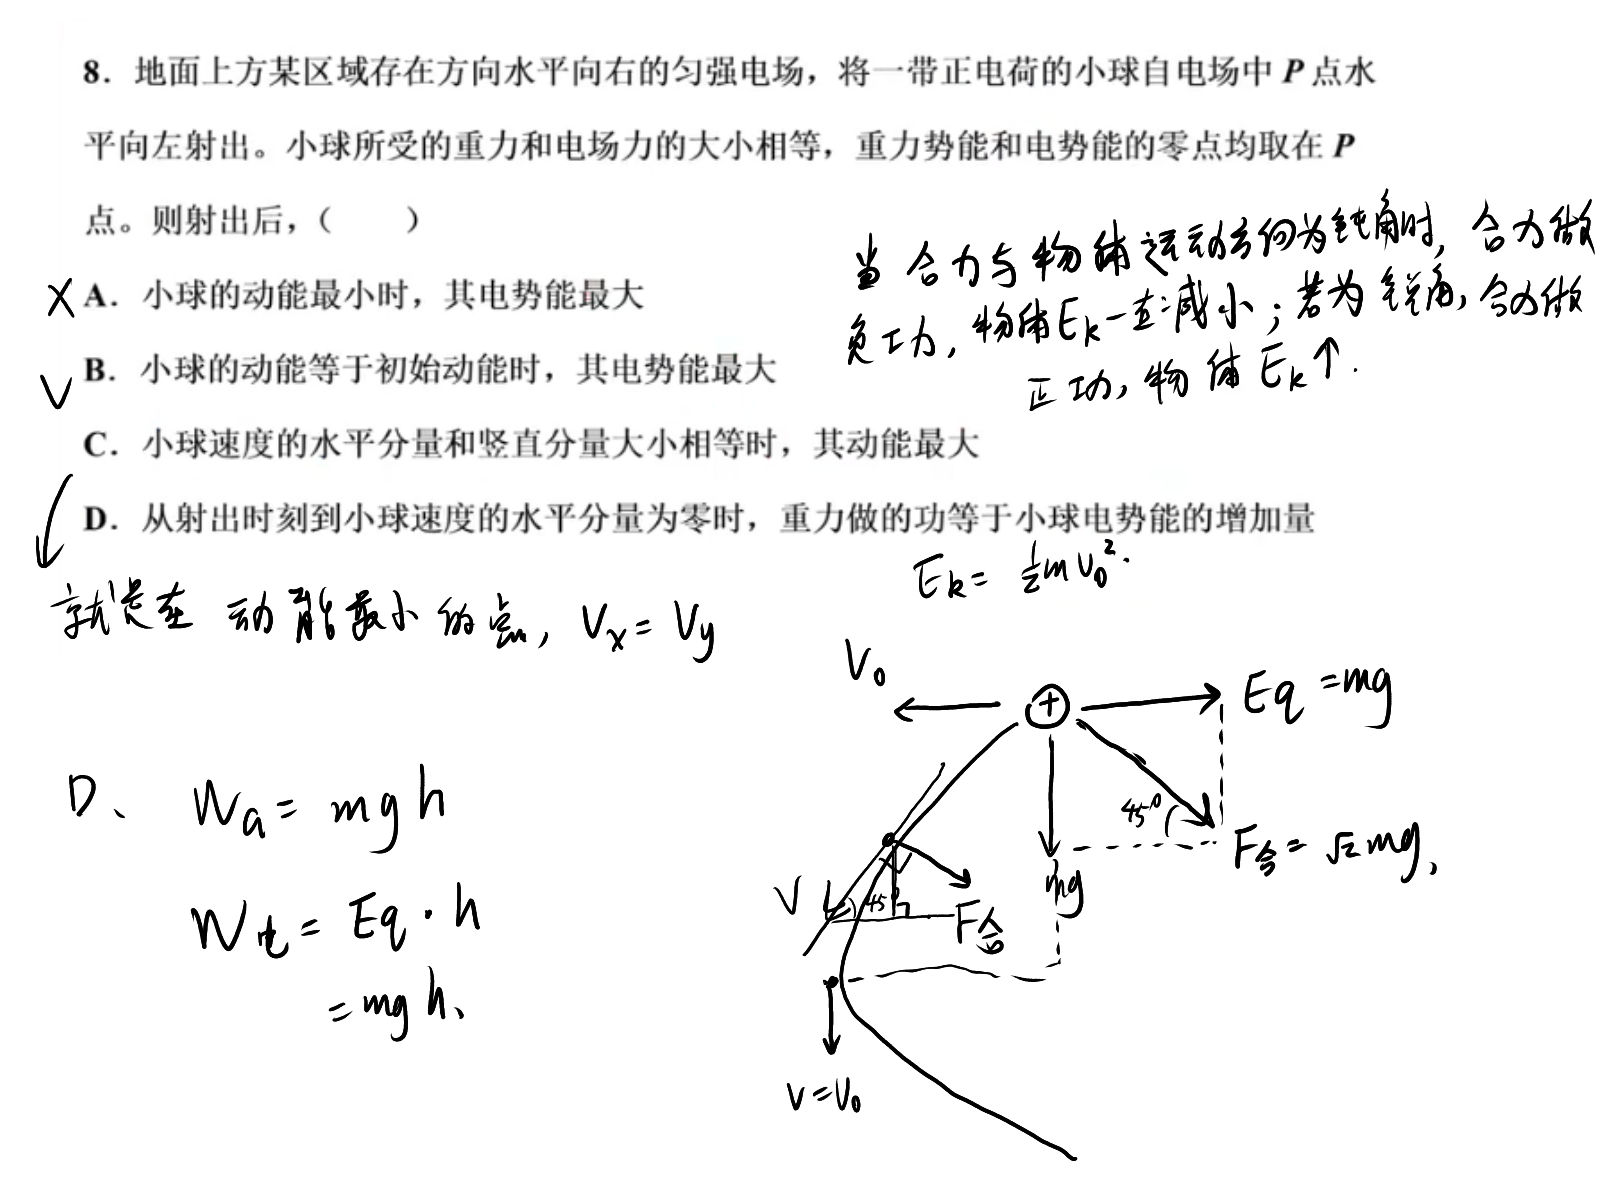 8．地面上方某区域存在方向水平向右的匀强电场，将一带正电荷的小球自电场中 P 点水
平向左射出。小球所受的重力和电场力的大小相等，重力势能和电势能的零点均取在 P
点。则射出后，（　　）
当合力与物体运动方向为钝角时，合力做
× A．小球的动能最小时，其电势能最大
负功，物体Ek一直减小；若为锐角，合力做
√ B．小球的动能等于初始动能时，其电势能最大
正功，物体Ek↑.
C．小球速度的水平分量和竖直分量大小相等时，其动能最大
D．从射出时刻到小球速度的水平分量为零时，重力做的功等于小球电势能的增加量
Ek= ½mv₀².
就是在动能最小的点，Vx= Vy
V₀
+
Eq =mg
D、 WG= mgh
45°
F合= √2mg,
mg
V
45°
F合
W电= Eq·h
=mgh、
V=V₀